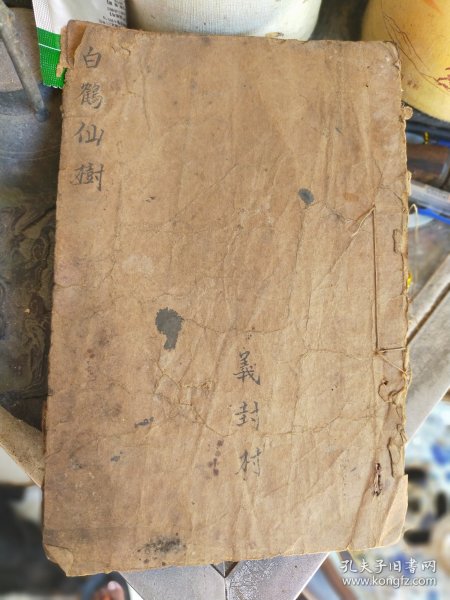 白鶴仙樹
義封村
孔夫子旧书网
www.kongfz.com